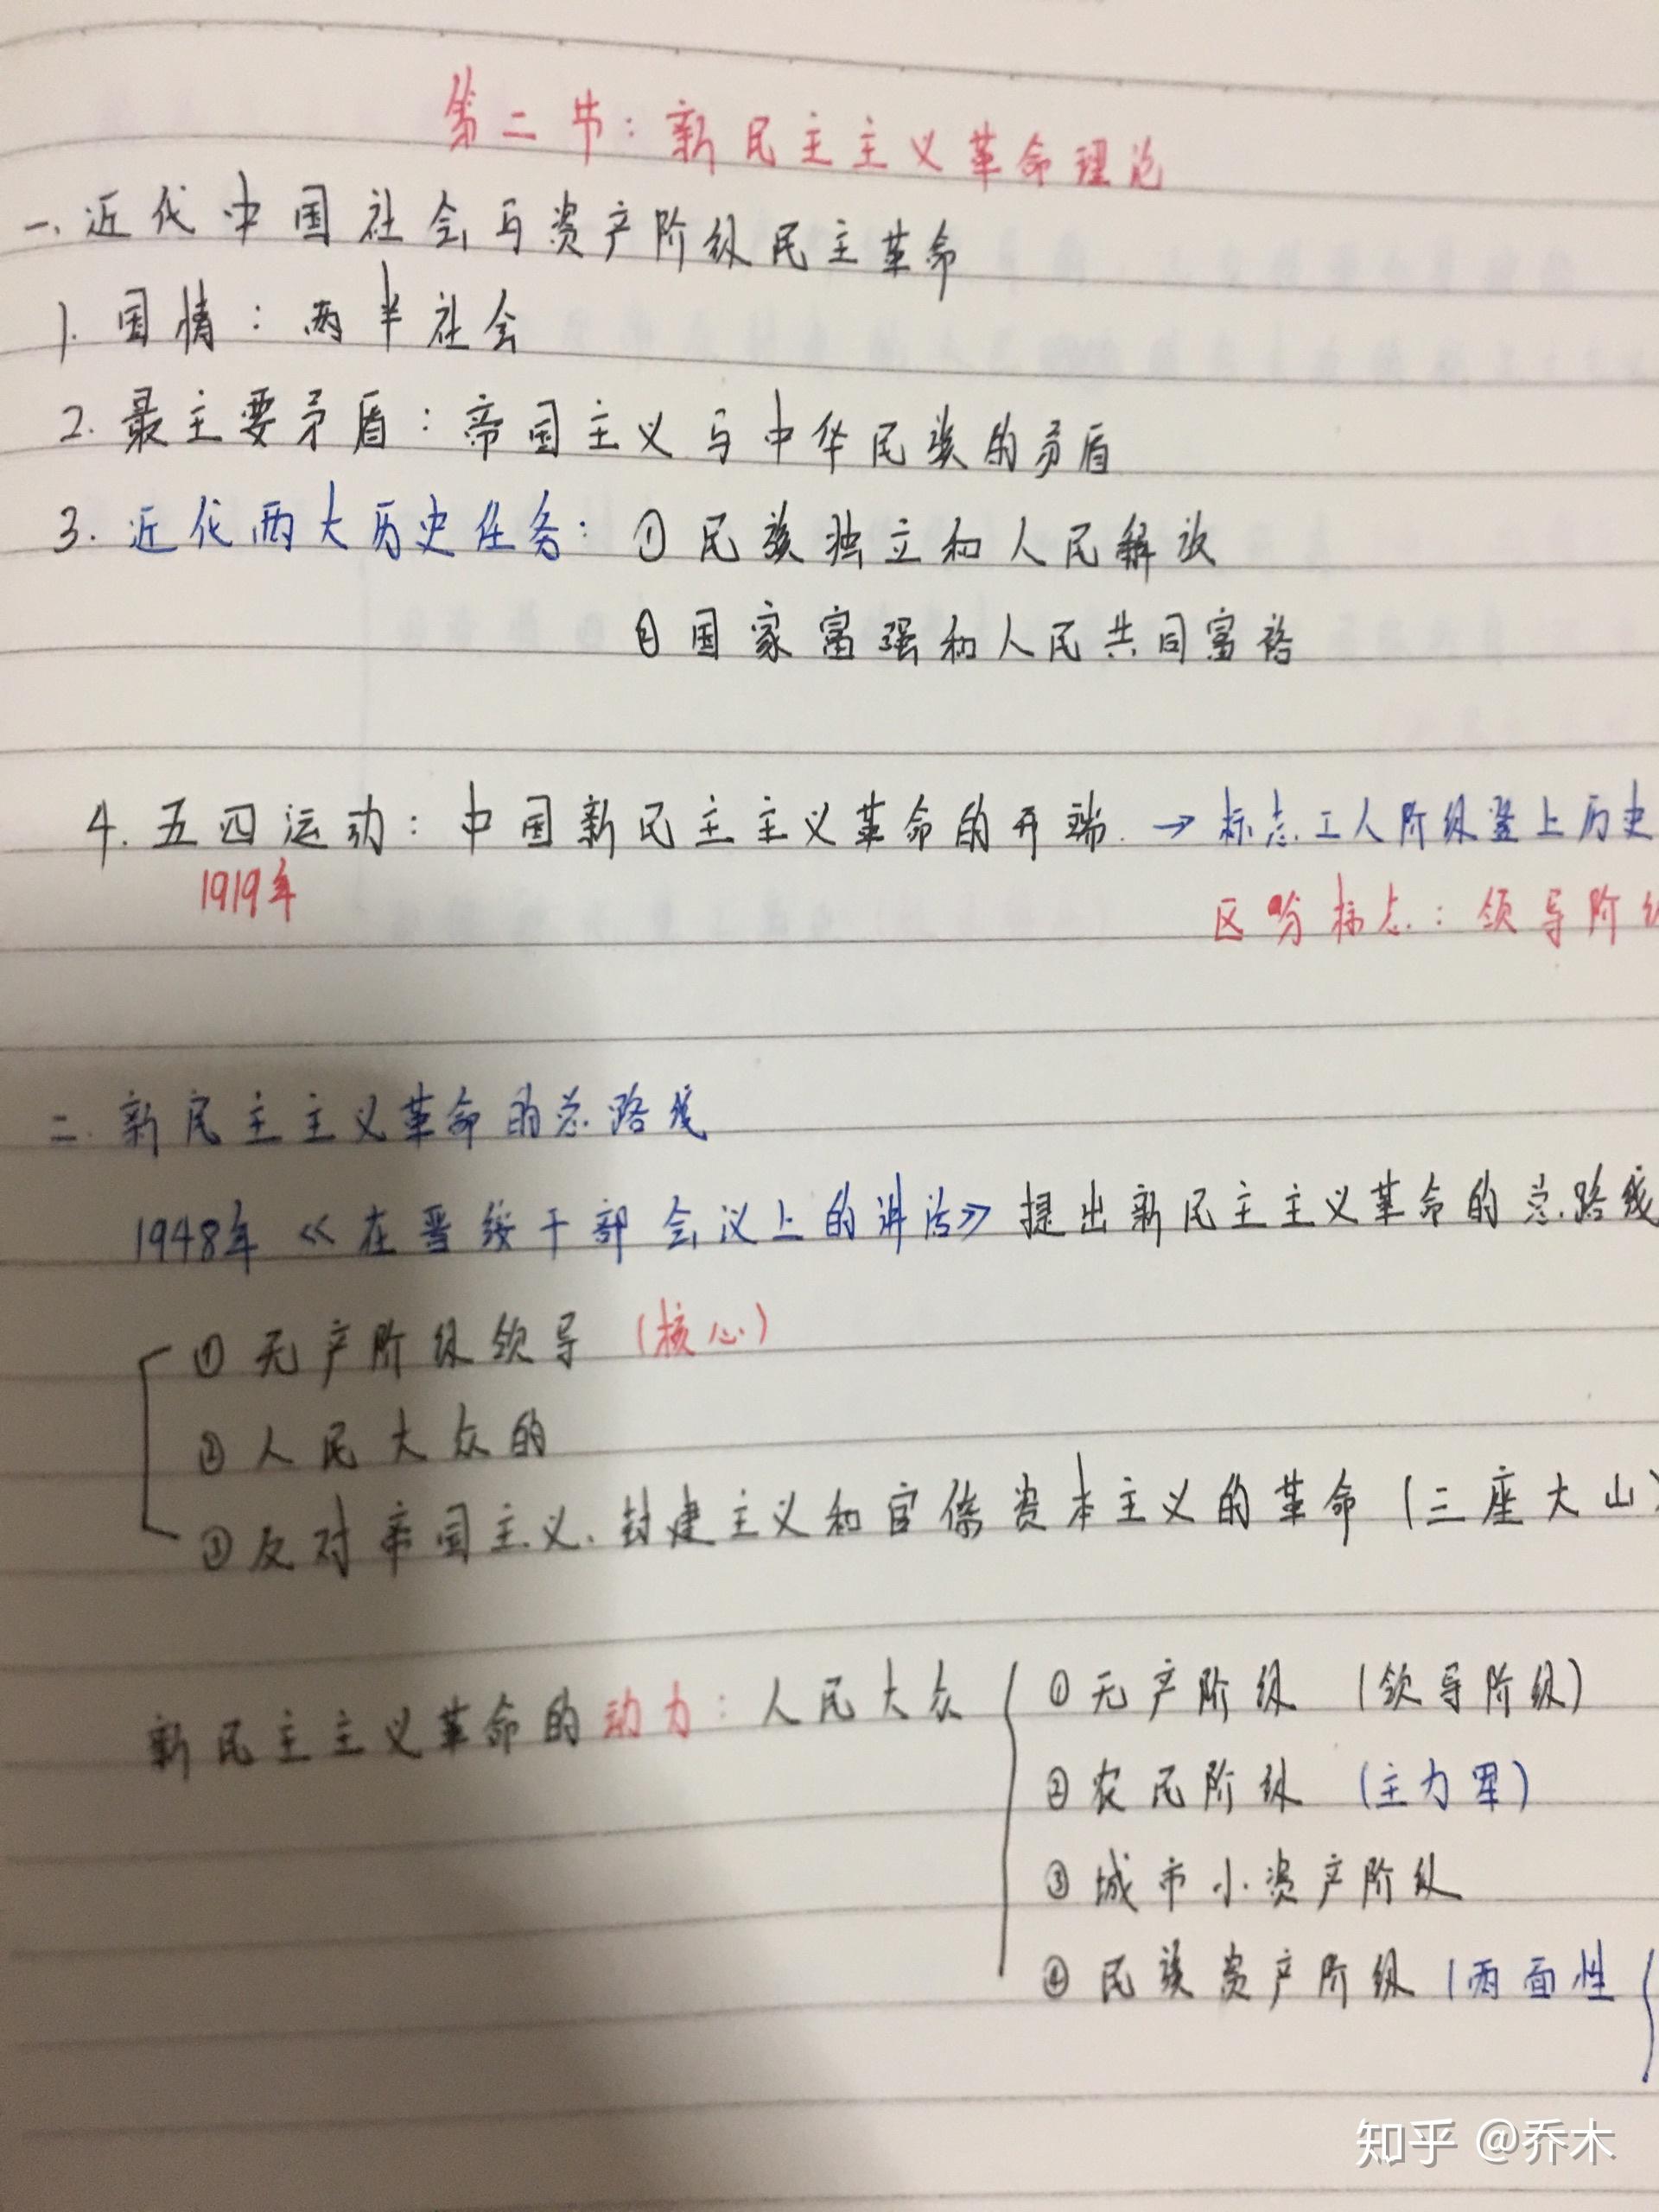 第二节：新民主主义革命理论
一、近代中国社会与资产阶级民主革命
1. 国情：两半社会
2. 最主要矛盾：帝国主义与中华民族的矛盾
3. 近代两大历史任务：①民族独立和人民解放
②国家富强和人民共同富裕
4. 五四运动：中国新民主主义革命的开端. → 标志工人阶级登上历史
1919年
区分标志：领导阶级
二. 新民主主义革命的总路线
1948年《在晋绥干部会议上的讲话》提出新民主主义革命的总路线
①无产阶级领导（核心）
②人民大众的
③反对帝国主义、封建主义和官僚资本主义的革命（三座大山）
新民主主义革命的动力：人民大众
①无产阶级（领导阶级）
②农民阶级（主力军）
③城市小资产阶级
④民族资产阶级（两面性
知乎 @乔木